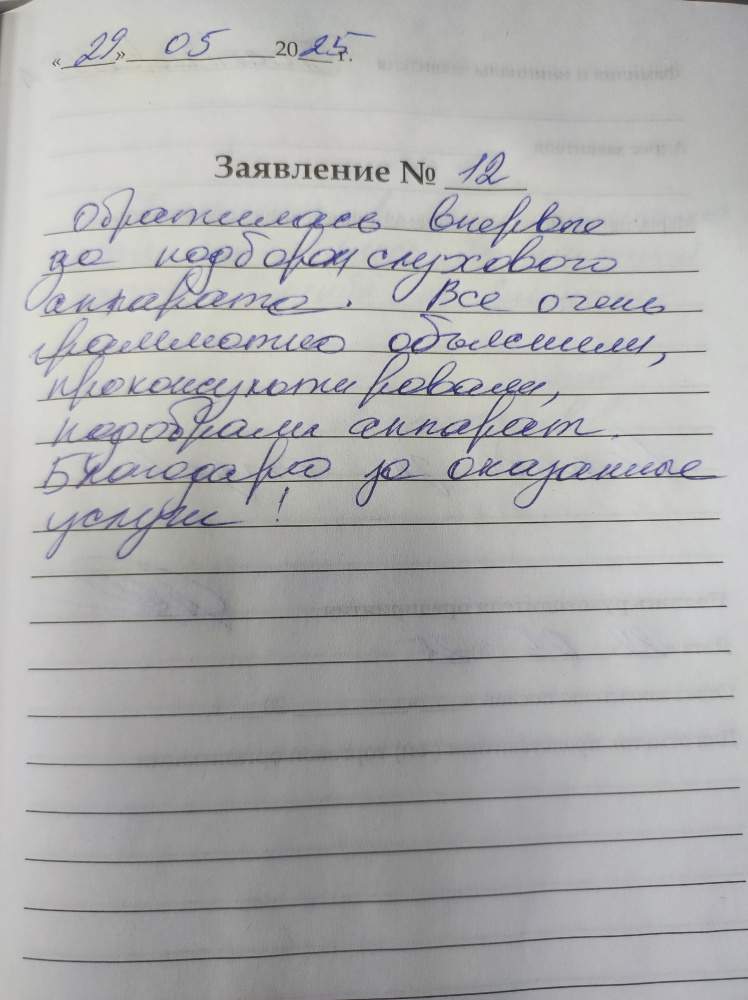 « 29 » 05 2025 г.
Заявление № 12
обратилась впервые
за подбором слухового
аппарата. Все очень
грамотно объяснили,
проконсультировали,
подобрали аппарат.
Благодарю за оказанные
услуги!